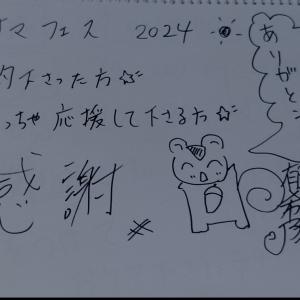 マフェス 2024
下さった方☆
っちゃ応援して下さる方☆
感謝
ありがとう